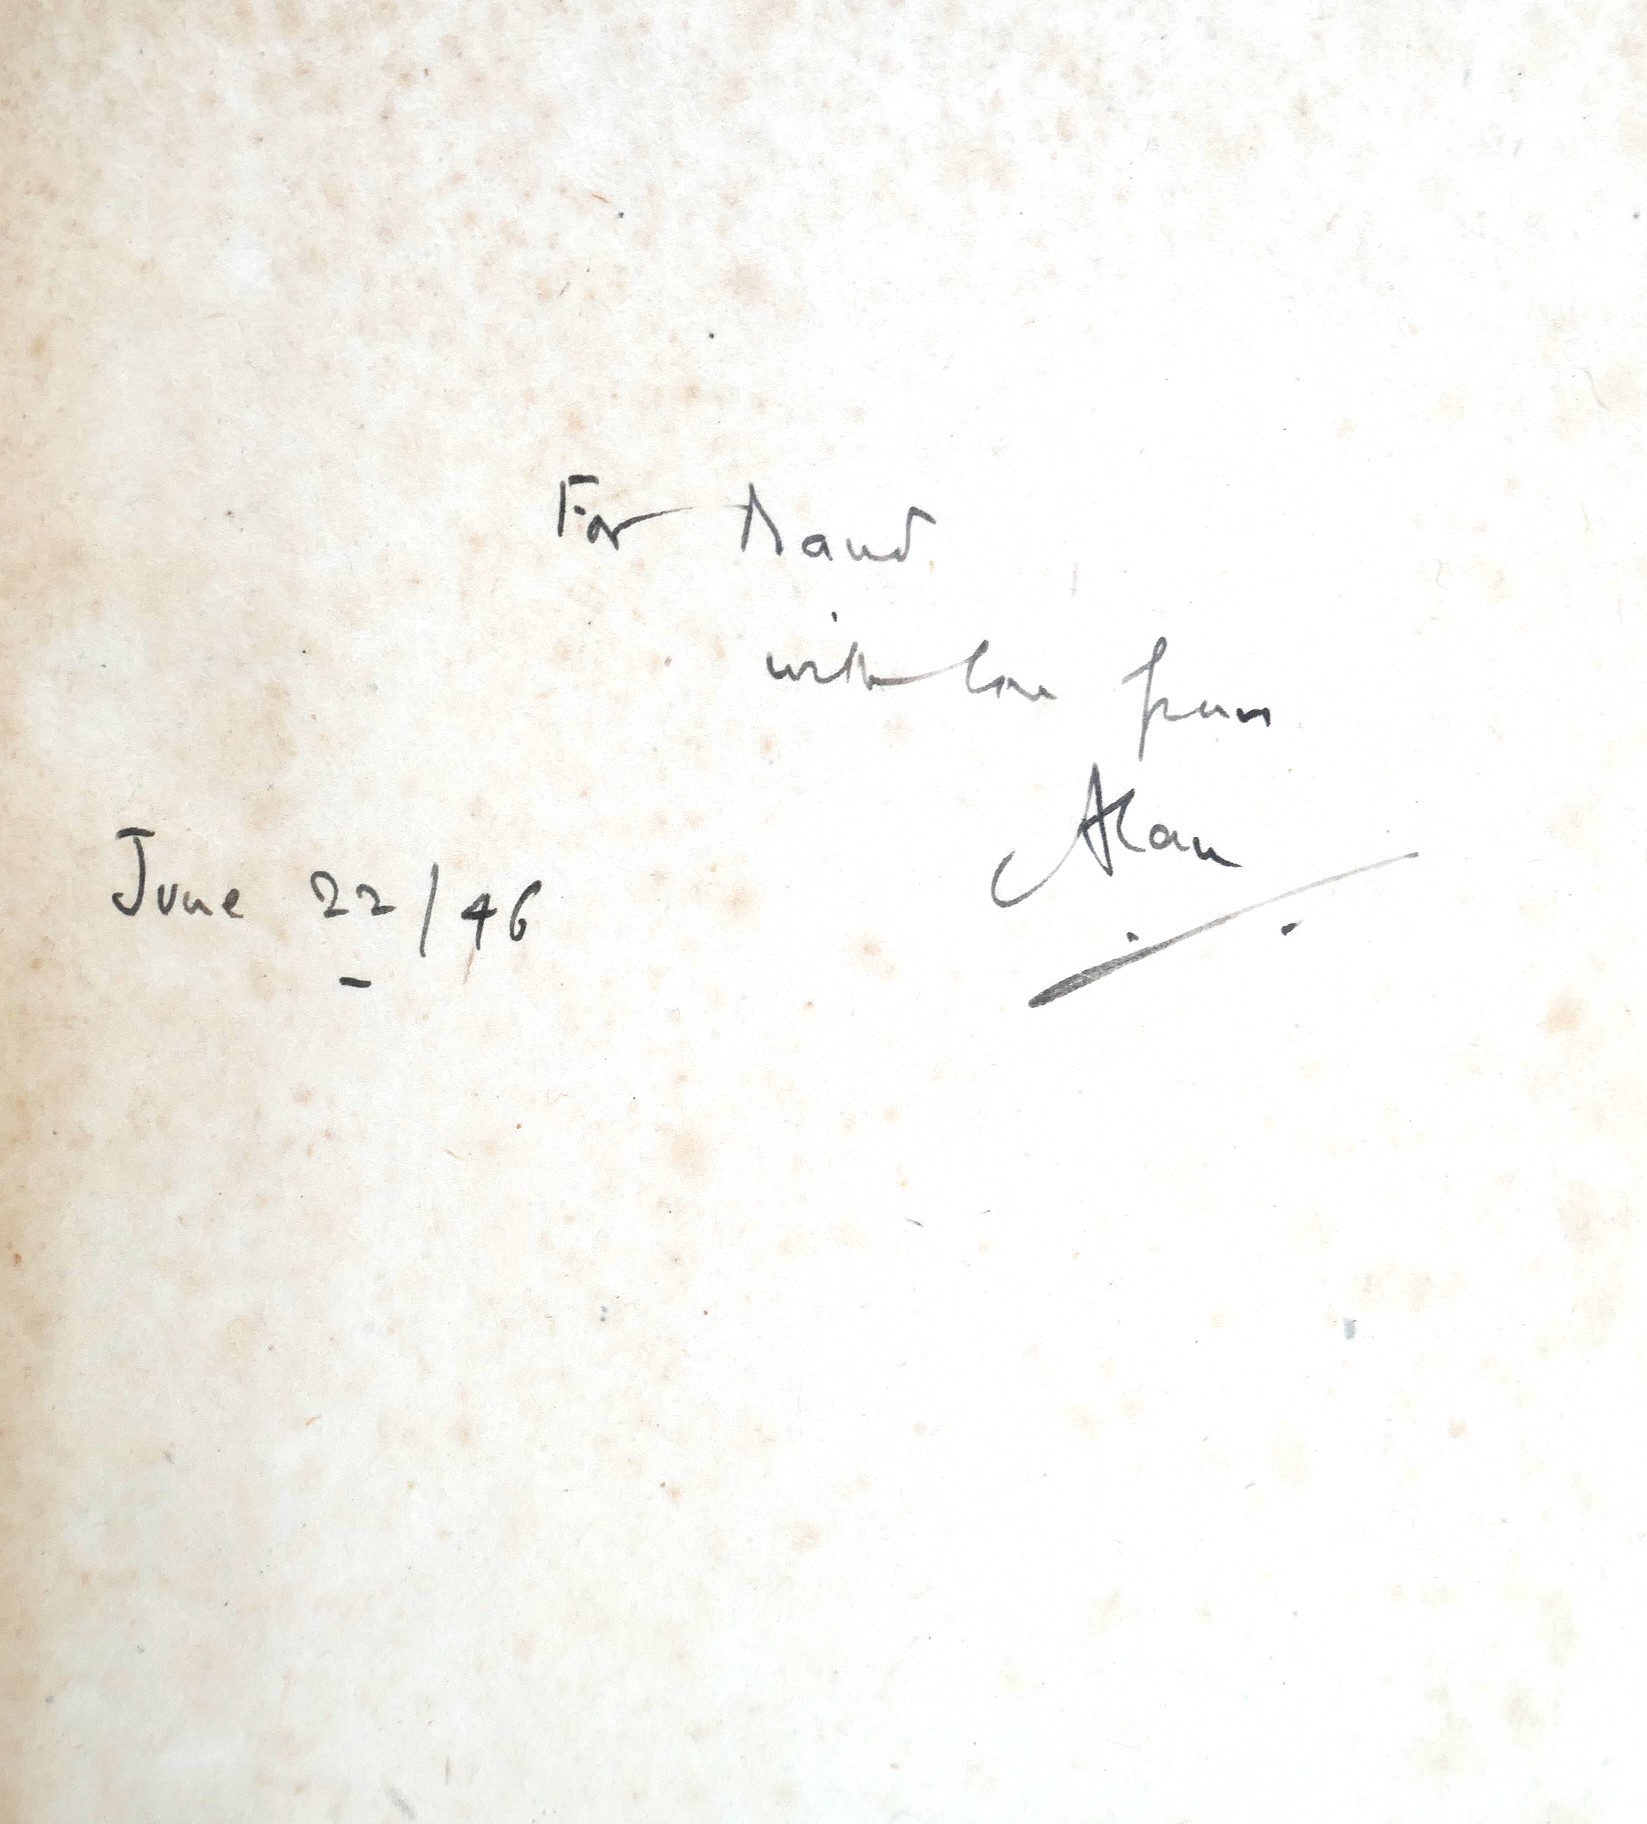 For Maud
with love from
Alan
June 22/46